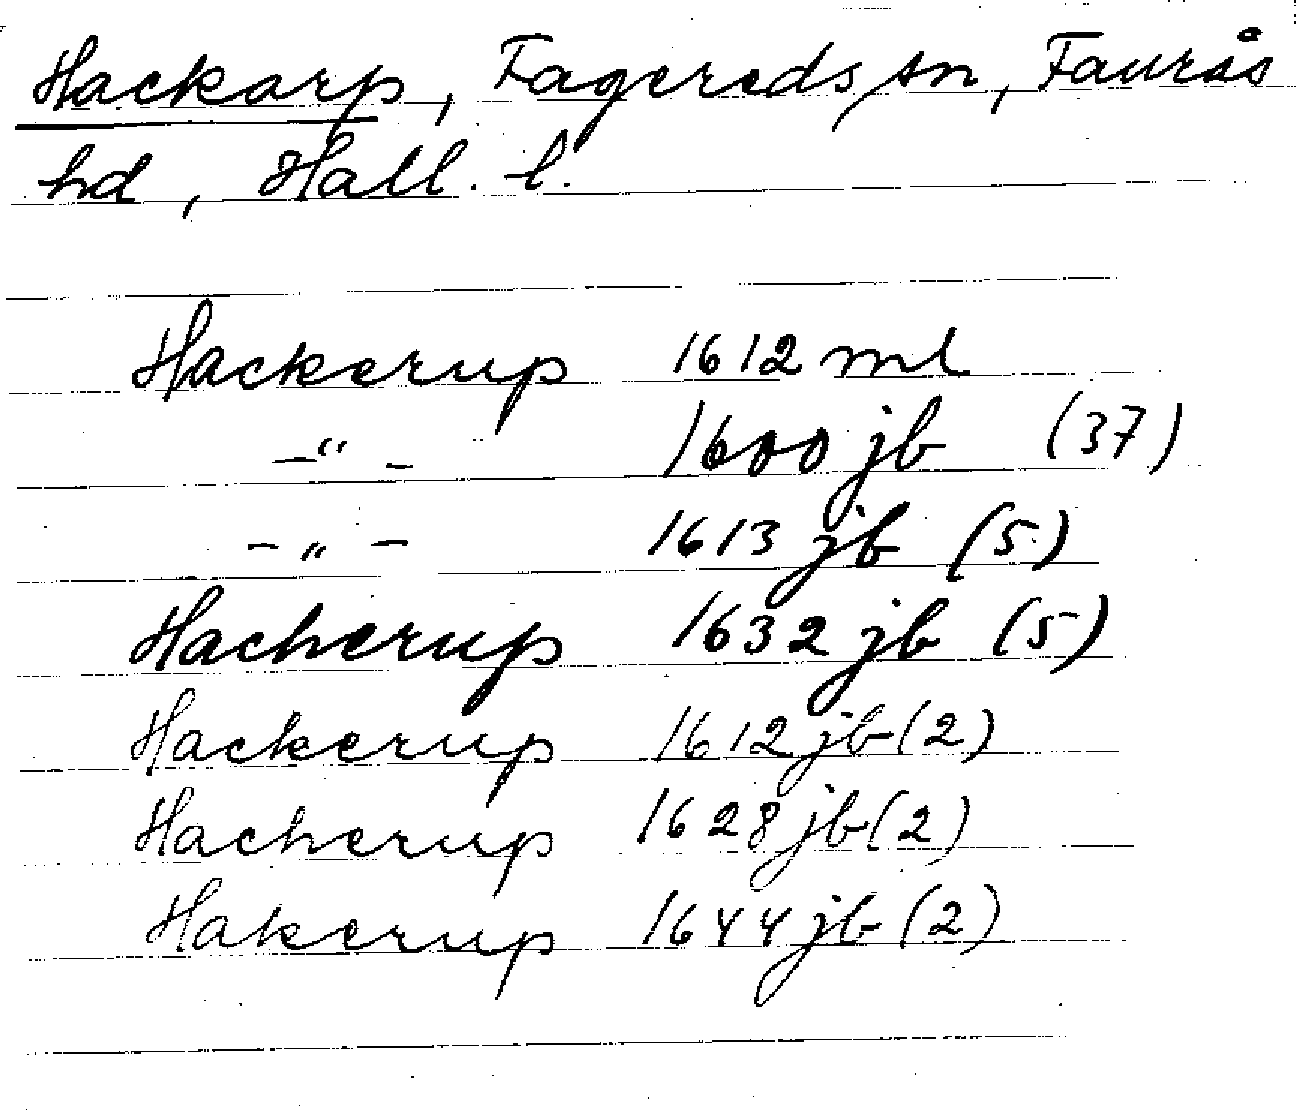 Hackarp, Fagereds sn, Faurås
hd, Hall. l.
Hackerup 1612 ml
-"- 1600 jb (37)
-"- 1613 jb (5)
Hacherup 1632 jb (5)
Hackerup 1612 jb (2)
Hacherup 1628 jb (2)
Hakerup 1644 jb (2)